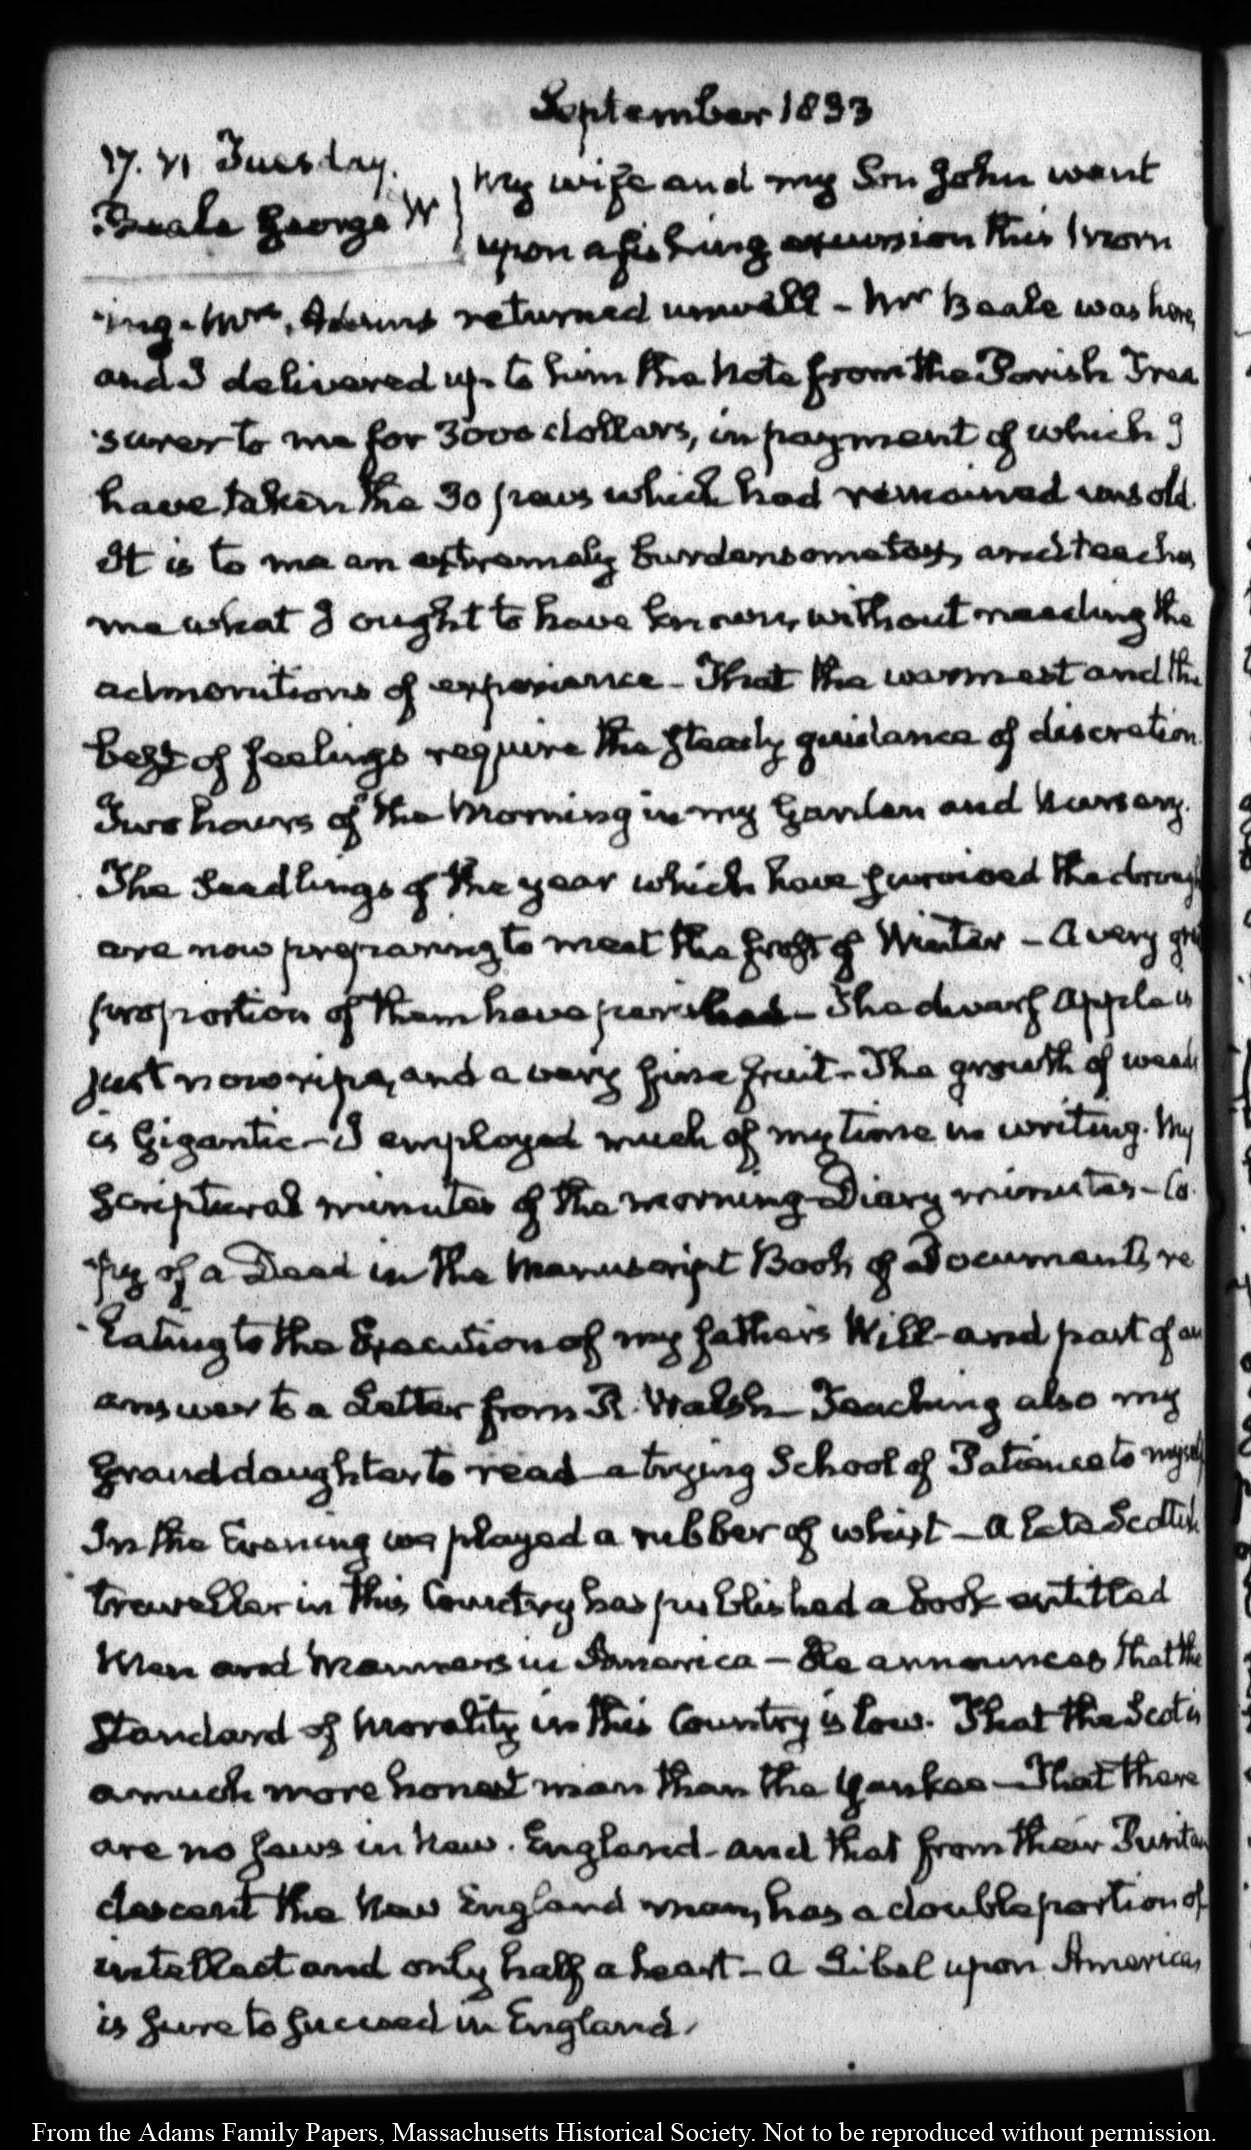 September 1833
17. VI Tuesday.
Beale George W
My wife and my Son John went
upon a fishing excursion this Morn
ing. Mrs. Adams returned unwell – Mr Beale was here,
and I delivered up to him the Note from the Parish Trea
surer to me for 3000 dollars, in payment of which I
have taken the 30 pews which had remained unsold.
It is to me an extremely burdensome tax, and teaches
me what I ought to have known, without needing the
admonitions of experience – That the warmest and the
best of feelings require the steady guidance of discretion.
Two hours of the Morning in my Garden and Nursery.
The Seedlings of the year which have survived the drought
are now preparing to meet the frost of Winter – A very great
proportion of them have perished – The dwarf Apple is
just now ripe, and a very fine fruit – The growth of weeds
is Gigantic – I employed much of my time in writing. My
Scriptural minutes of the morning – Diary minutes – Co
py of a Deed in the Manuscript Book of Documents re
lating to the Execution of my father's Will – and part of an
answer to a Letter from R. Walsh – Teaching also my
Granddaughter to read – a trying School of Patience to myself
In the Evening we played a rubber of whist – A late Scottish
traveller in this Country has published a book entitled
Men and Manners in America – He announces that the
standard of Morality in this Country is low. That the Scot is
a much more honest man than the Yankee – That there
are no Jews in New-England – and that from their Puritan
descent the New England man, has a double portion of
intellect and only half a heart – A Libel upon Americas
is sure to succeed in England.
From the Adams Family Papers, Massachusetts Historical Society. Not to be reproduced without permission.